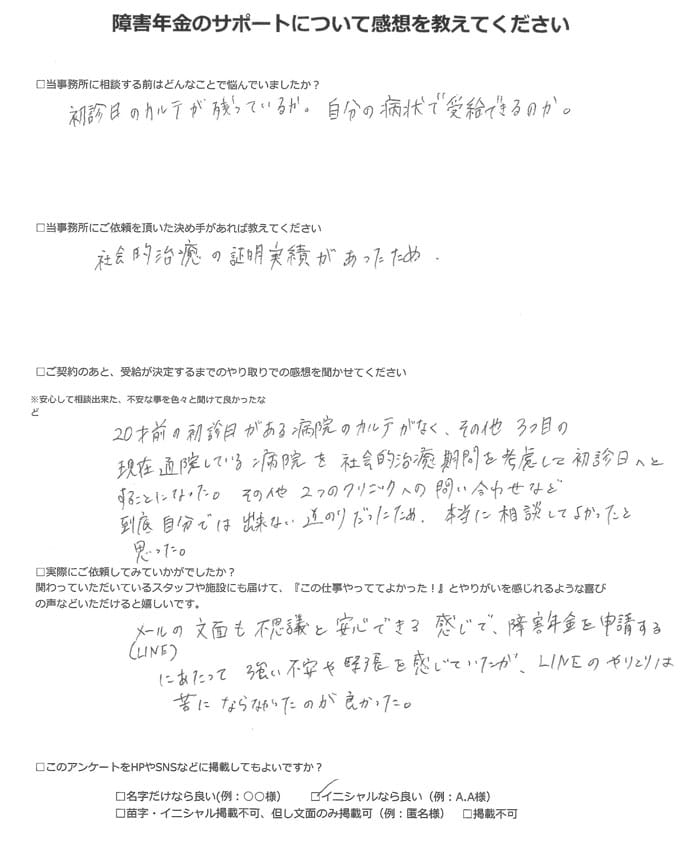 障害年金のサポートについて感想を教えてください
□当事務所に相談する前はどんなことで悩んでいましたか？
初診日のカルテが残っているか。自分の病状で受給できるのか。
□当事務所にご依頼を頂いた決め手があれば教えてください
社会的治癒の証明実績があったため．
□ご契約のあと、受給が決定するまでのやり取りでの感想を聞かせてください
※安心して相談出来た、不安な事を色々と聞けて良かったな
ど
20才前の初診日がある病院のカルテがなく、その他3つ目の
現在通院している病院を社会的治癒期間を考慮して初診日へと
することになった。その他2つのクリニックへの問い合わせなど
到底自分では出来ない道のりだったため、本当に相談してよかったと
思った。
□実際にご依頼してみていかがでしたか？
関わっていただいているスタッフや施設にも届けて、『この仕事やっててよかった！』とやりがいを感じれるような喜び
の声などいただけると嬉しいです。
メールの文面も不思議と安心できる感じで、障害年金を申請する
(LINE)
にあたって強い不安や緊張を感じていたが、LINEのやりとりは
苦にならなかったのが良かった。
□このアンケートをHPやSNSなどに掲載してもよいですか？
□名字だけなら良い(例：○○様） ☑イニシャルなら良い（例：A.A様）
□苗字・イニシャル掲載不可、但し文面のみ掲載可（例：匿名様） □掲載不可